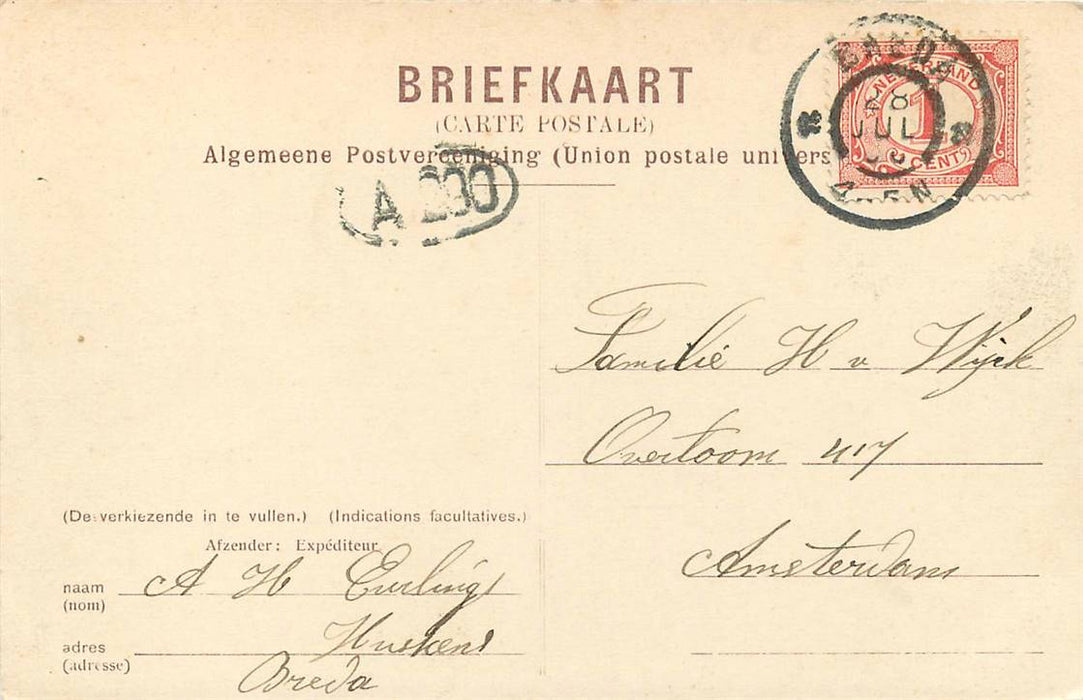 BRIEFKAART
(CARTE POSTALE)
Algemeene Postvereeniging (Union postale univers
A 200
BREDA
NEDERLAND
28
JUL
4-5N
1
CENT
Familie H v Wijck
Overtoom 417
Amsterdam
(De verkiezende in te vullen.) (Indications facultatives.)
Afzender: Expéditeur
naam A H Eurlings
(nom)
adres Huskens
(adresse)
Breda